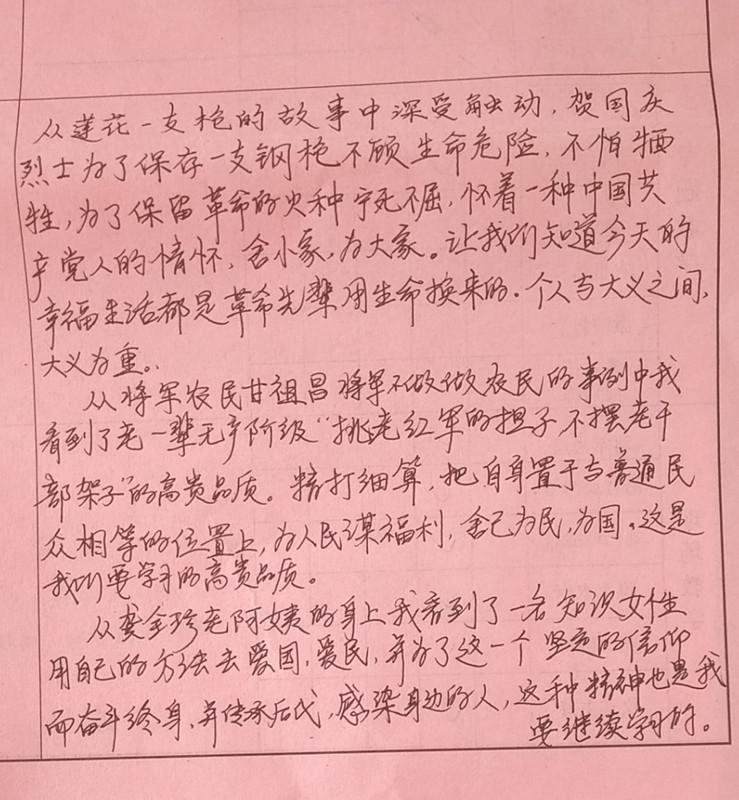 从莲花一支枪的故事中深受触动，贺国庆
烈士为了保存一支钢枪不顾生命危险，不怕牺
牲，为了保留革命的火种宁死不屈，怀着一种中国共
产党人的情怀，舍小家，为大家。让我们知道今天的
幸福生活都是革命先辈用生命换来的．个人与大义之间，
大义为重。
从将军农民甘祖昌将军不做做农民的事例中我
看到了老一辈无产阶级“挑老红军的担子，不摆老干
部架子”的高贵品质。精打细算，把自身置于与普通民
众相等的位置上，为人民谋福利，舍己为民，为国。这是
我们要学习的高贵品质。
从龚全珍老阿姨的身上我看到了一名知识女性
用自己的方法去爱国，爱民，并为了这一个坚定的信仰
而奋斗终身，并传承后代，感染身边的人，这种精神也是我
要继续学习的。